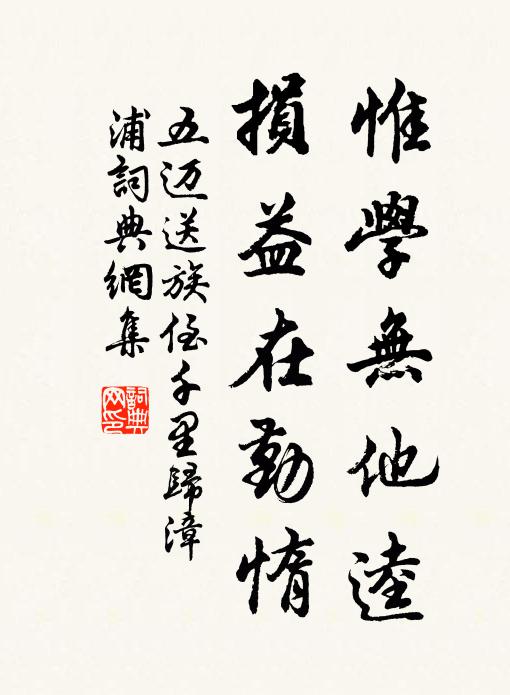 惟學無他逵
損益在勤惰
五迈送族侄千里歸漳
浦詞典網集
詞典
网印